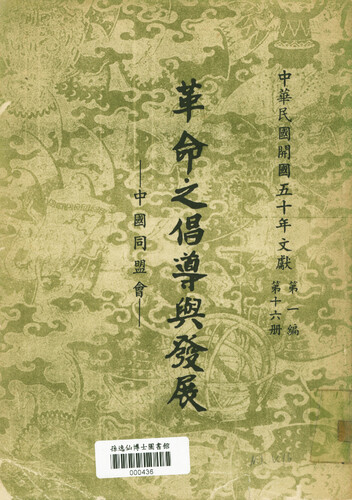 中華民國開國五十年文獻
第一編
第十六册
革命之倡導與發展
—中國同盟會—
孫逸仙博士圖書館
000436